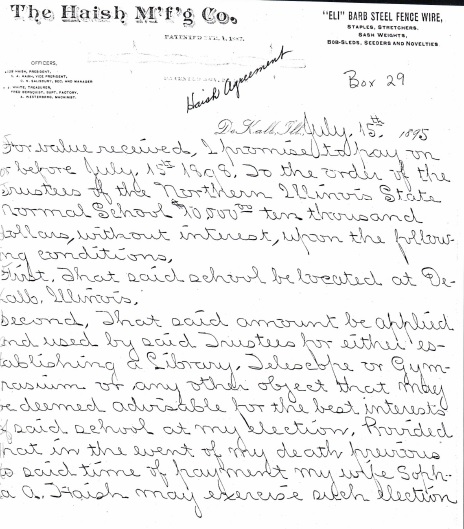 The Haish M'f'g Co.
"ELI" BARB STEEL FENCE WIRE,
STAPLES, STRETCHERS,
SASH WEIGHTS,
BOB-SLEDS, SEEDERS AND NOVELTIES
OFFICERS,
HAISH, PRESIDENT,
VICE PRESIDENT,
SEC. AND MANAGER
WHITE, TREASURER,
SUPT. FACTORY,
MACHINIST.
Haish Agreement
Box 29
DeKalb, Ill. July, 15th 1895
For value received, I promise to pay on
or before July, 15th to the order of the
Trustees of the Northern Illinois State
Normal School ten thousand
dollars, without interest, upon the follow-
ng conditions,
First, That said school be located at De-
Kalb, Illinois,
Second, That said amount be applied
and used by said Trustees for either es-
tablishing a Library, Telescope or Gym-
nasium or any other object that may
be deemed advisable for the best interests
of said school at my election, Provided
that in the event of my death previous
to said time of payment my wife Soph-
ia A. Haish may exercise such election